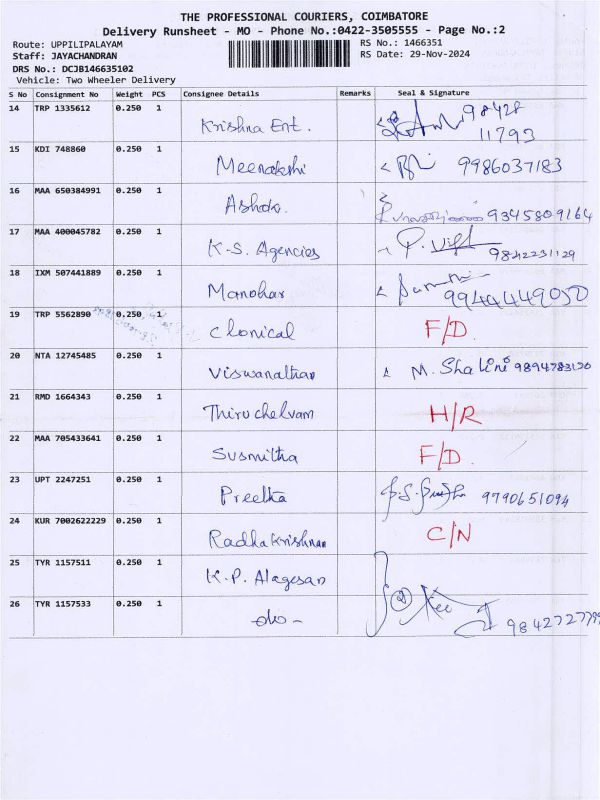 THE PROFESSIONAL COURIERS, COIMBATORE
Delivery Runsheet - MO - Phone No.:0422-3505555 - Page No.:2
Route: UPPILIPALAYAM
Staff: JAYACHANDRAN
DRS No.: DCJB146635102
Vehicle: Two Wheeler Delivery
RS No.: 1466351
RS Date: 29-Nov-2024
S No Consignment No Weight PCS Consignee Details Remarks Seal & Signature
14 TRP 1335612 0.250 1 Krishna Ent. 98428 11793
15 KDI 748860 0.250 1 Meenakshi 9986037183
16 MAA 650384991 0.250 1 Ashok. 9345809164
17 MAA 400045782 0.250 1 K.S. Agencies 9842231129
18 IXM 507441889 0.250 1 Manohar 9944449050
19 TRP 5562890 0.250 1 Clonical F/D.
20 NTA 12745485 0.250 1 Viswanathan M. Shalini 9894783120
21 RMD 1664343 0.250 1 Thiruchelvam H/R
22 MAA 705433641 0.250 1 Susmitha F/D.
23 UPT 2247251 0.250 1 Preetha 9790651094
24 KUR 7002622229 0.250 1 Radhakrishnan C/N
25 TYR 1157511 0.250 1 K.P. Alagesan
26 TYR 1157533 0.250 1 -do- 9842727799